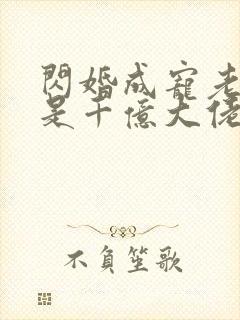 閃婚成寵老
是千億大佬
不負笙歌